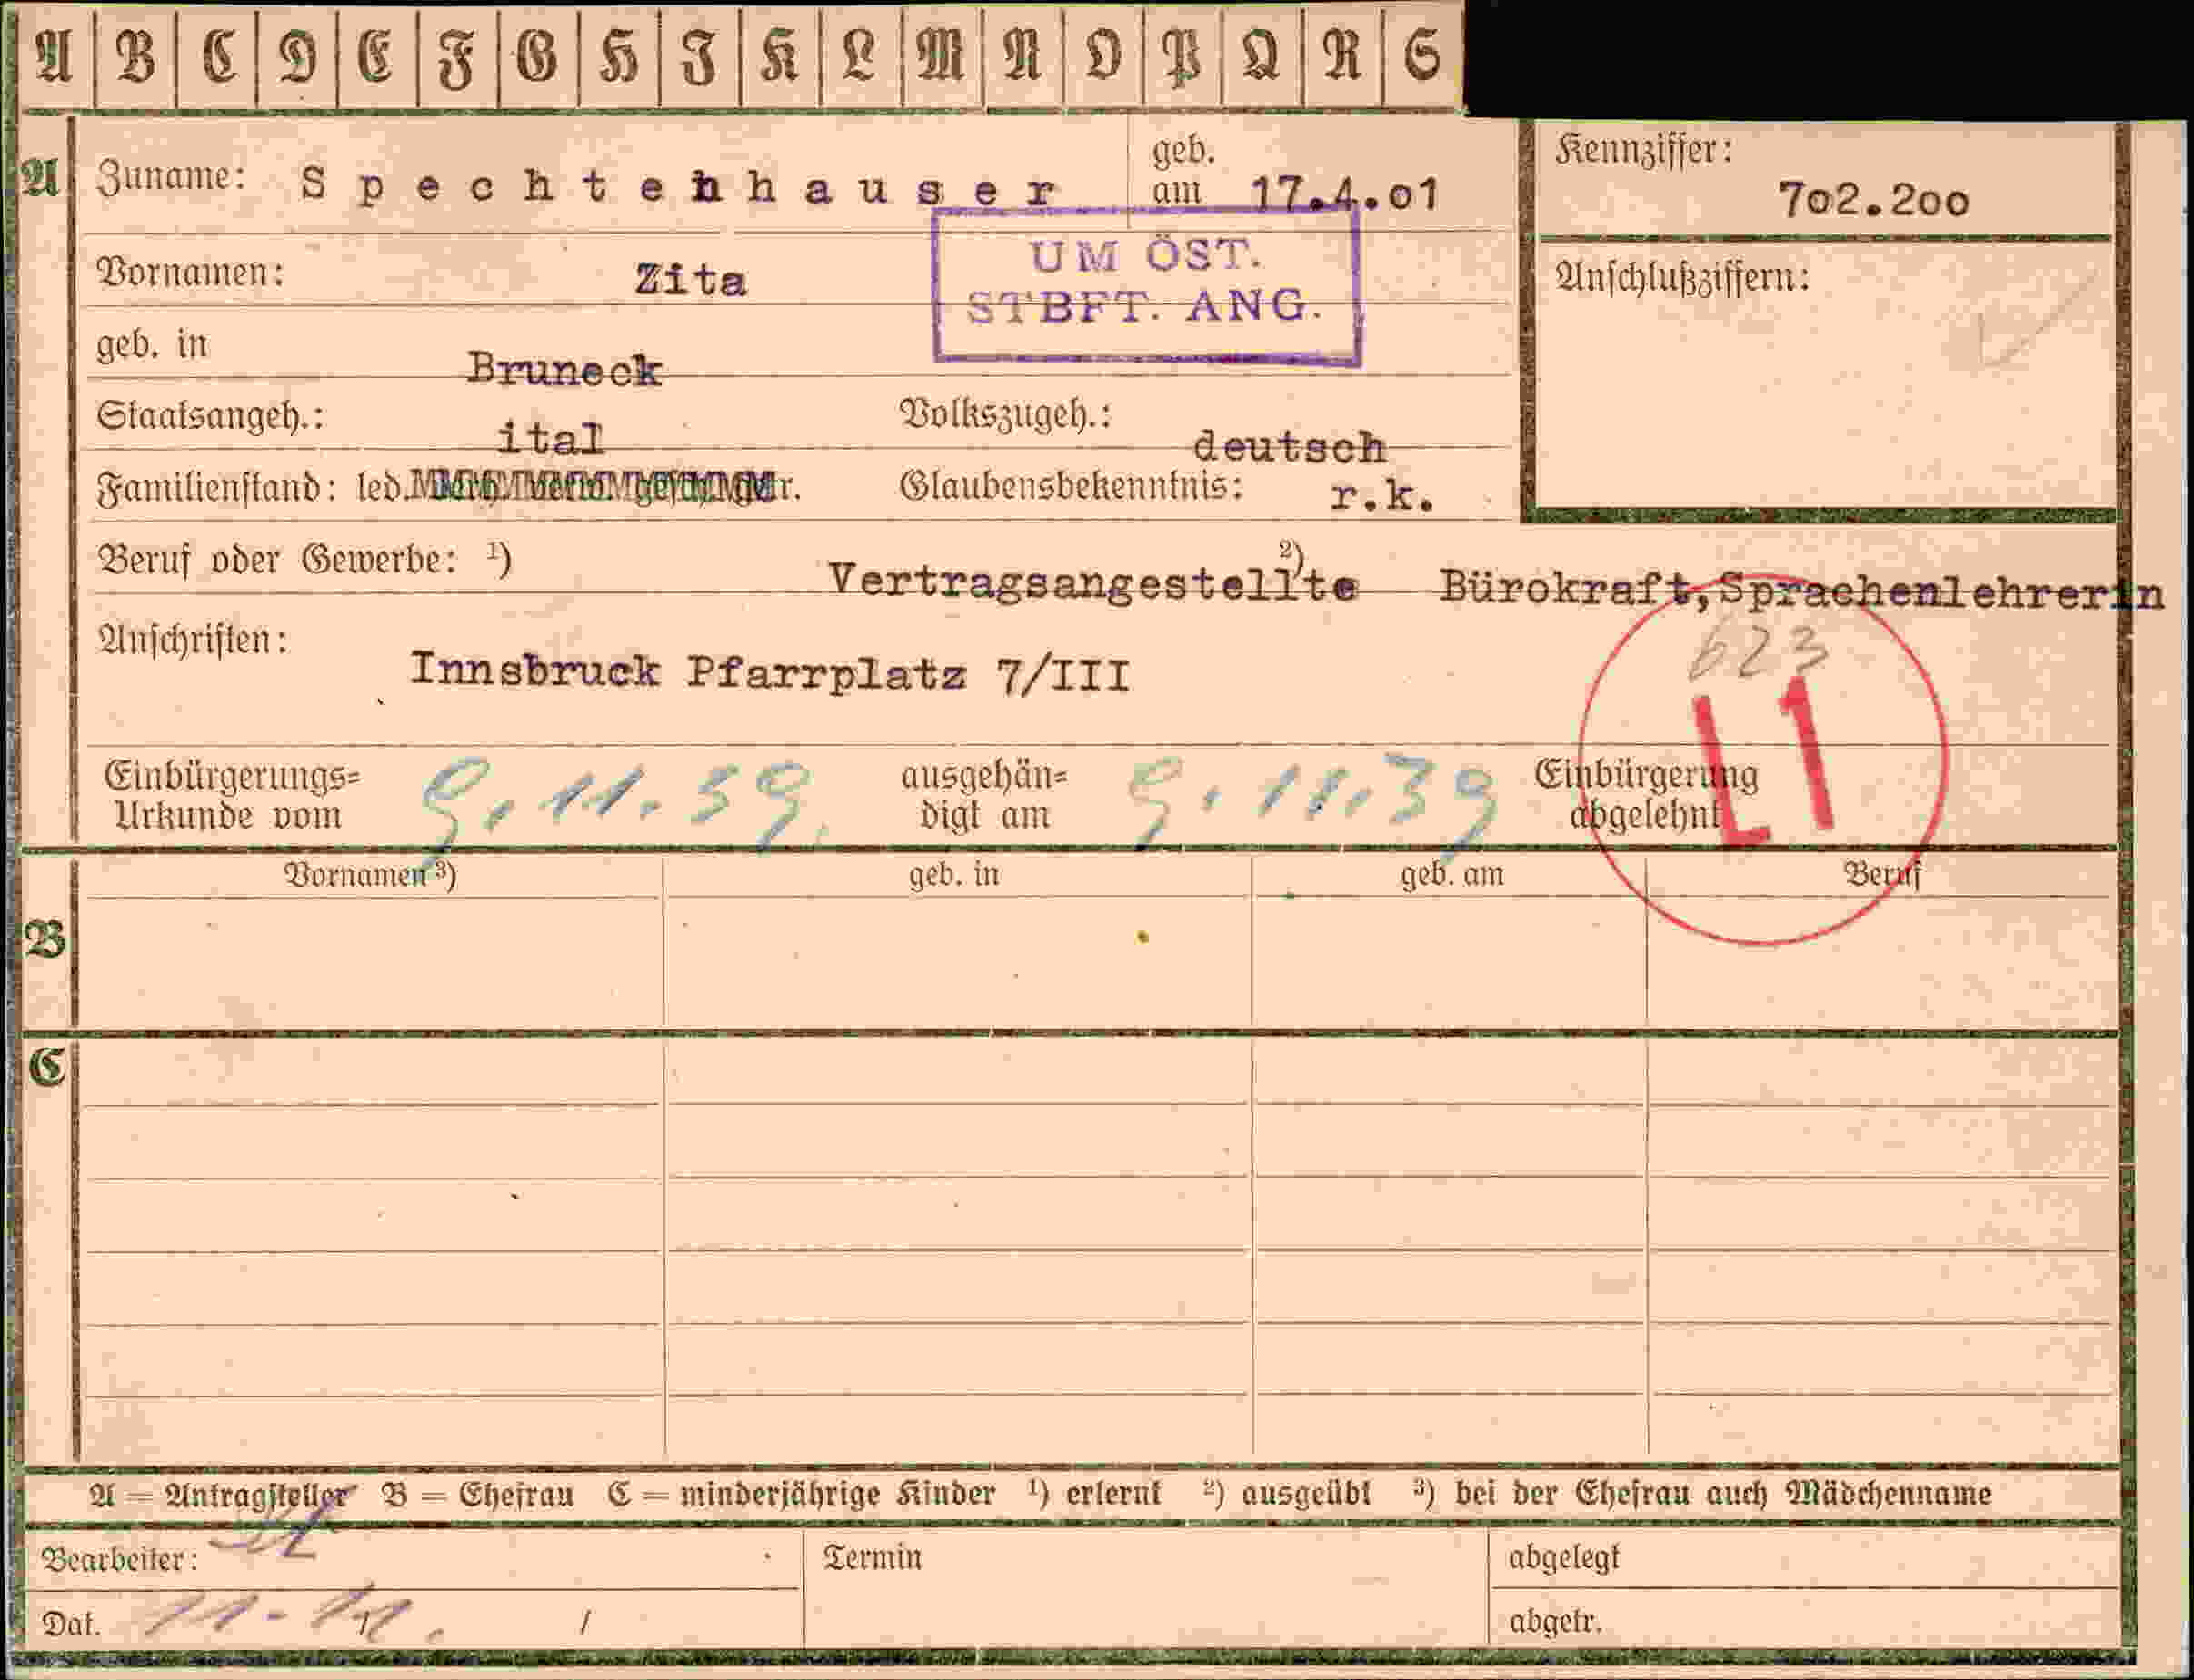 A B C D E F G H I K L M N O P Q R S
A Zuname: Spechtenhauser geb. am 17.4.01
Kennziffer: 702.200
Vornamen: Zita
UM ÖST.
STBFT. ANG.
Anschlußziffern:
geb. in Bruneck
Staatsangeh.: ital Volkszugeh.: deutsch
Familienstand: led. Glaubensbekenntnis: r.k.
Beruf oder Gewerbe: ¹) Vertragsangestellte ²) Bürokraft,Sprachenlehrerin
623
Anschriften: Innsbruck Pfarrplatz 7/III
L1
Einbürgerungs= ausgehän= Einbürgerung
Urkunde vom 9.11.39. digt am 9.11.39 abgelehnt
Vornamen ³) geb. in geb. am Beruf
B
C
A = Antragsteller B = Ehefrau C = minderjährige Kinder ¹) erlernt ²) ausgeübt ³) bei der Ehefrau auch Mädchenname
Bearbeiter: Termin abgelegt
Dat. abgetr.